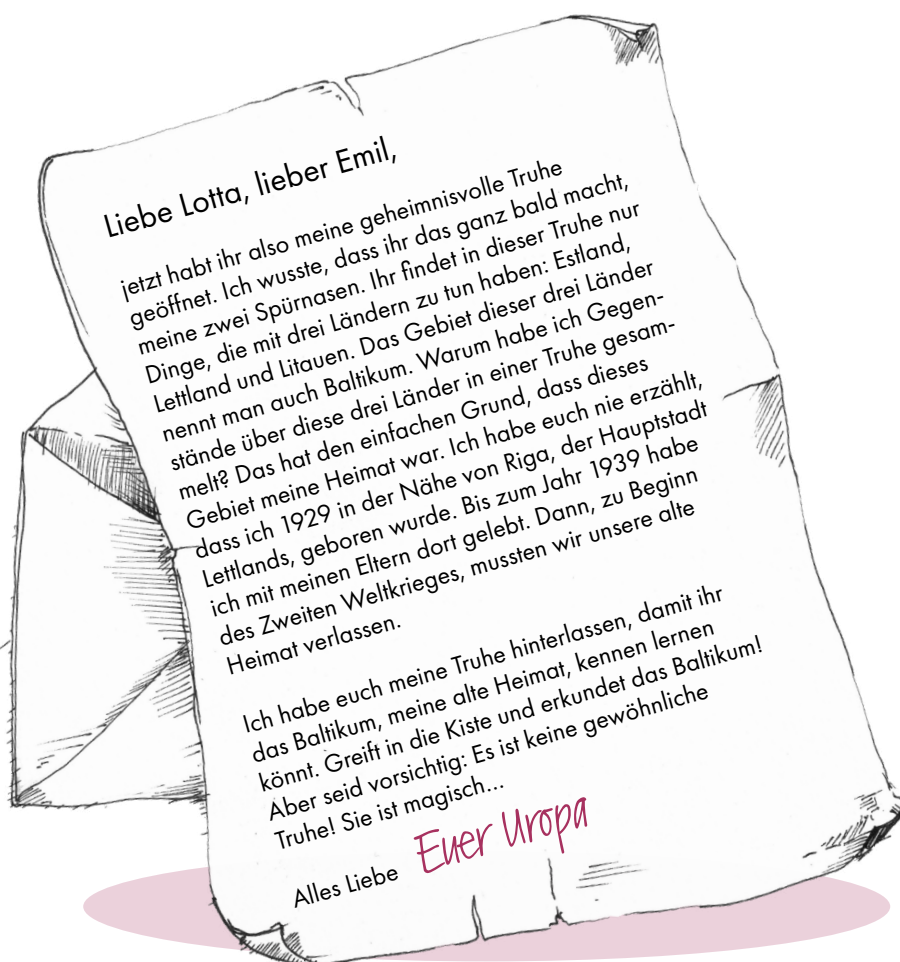 Liebe Lotta, lieber Emil,
jetzt habt ihr also meine geheimnisvolle Truhe
geöffnet. Ich wusste, dass ihr das ganz bald macht,
meine zwei Spürnasen. Ihr findet in dieser Truhe nur
Dinge, die mit drei Ländern zu tun haben: Estland,
Lettland und Litauen. Das Gebiet dieser drei Länder
nennt man auch Baltikum. Warum habe ich Gegen-
stände über diese drei Länder in einer Truhe gesam-
melt? Das hat den einfachen Grund, dass dieses
Gebiet meine Heimat war. Ich habe euch nie erzählt,
dass ich 1929 in der Nähe von Riga, der Hauptstadt
Lettlands, geboren wurde. Bis zum Jahr 1939 habe
ich mit meinen Eltern dort gelebt. Dann, zu Beginn
des Zweiten Weltkrieges, mussten wir unsere alte
Heimat verlassen.
Ich habe euch meine Truhe hinterlassen, damit ihr
das Baltikum, meine alte Heimat, kennen lernen
könnt. Greift in die Kiste und erkundet das Baltikum!
Aber seid vorsichtig: Es ist keine gewöhnliche
Truhe! Sie ist magisch...
Alles Liebe Euer Uropa